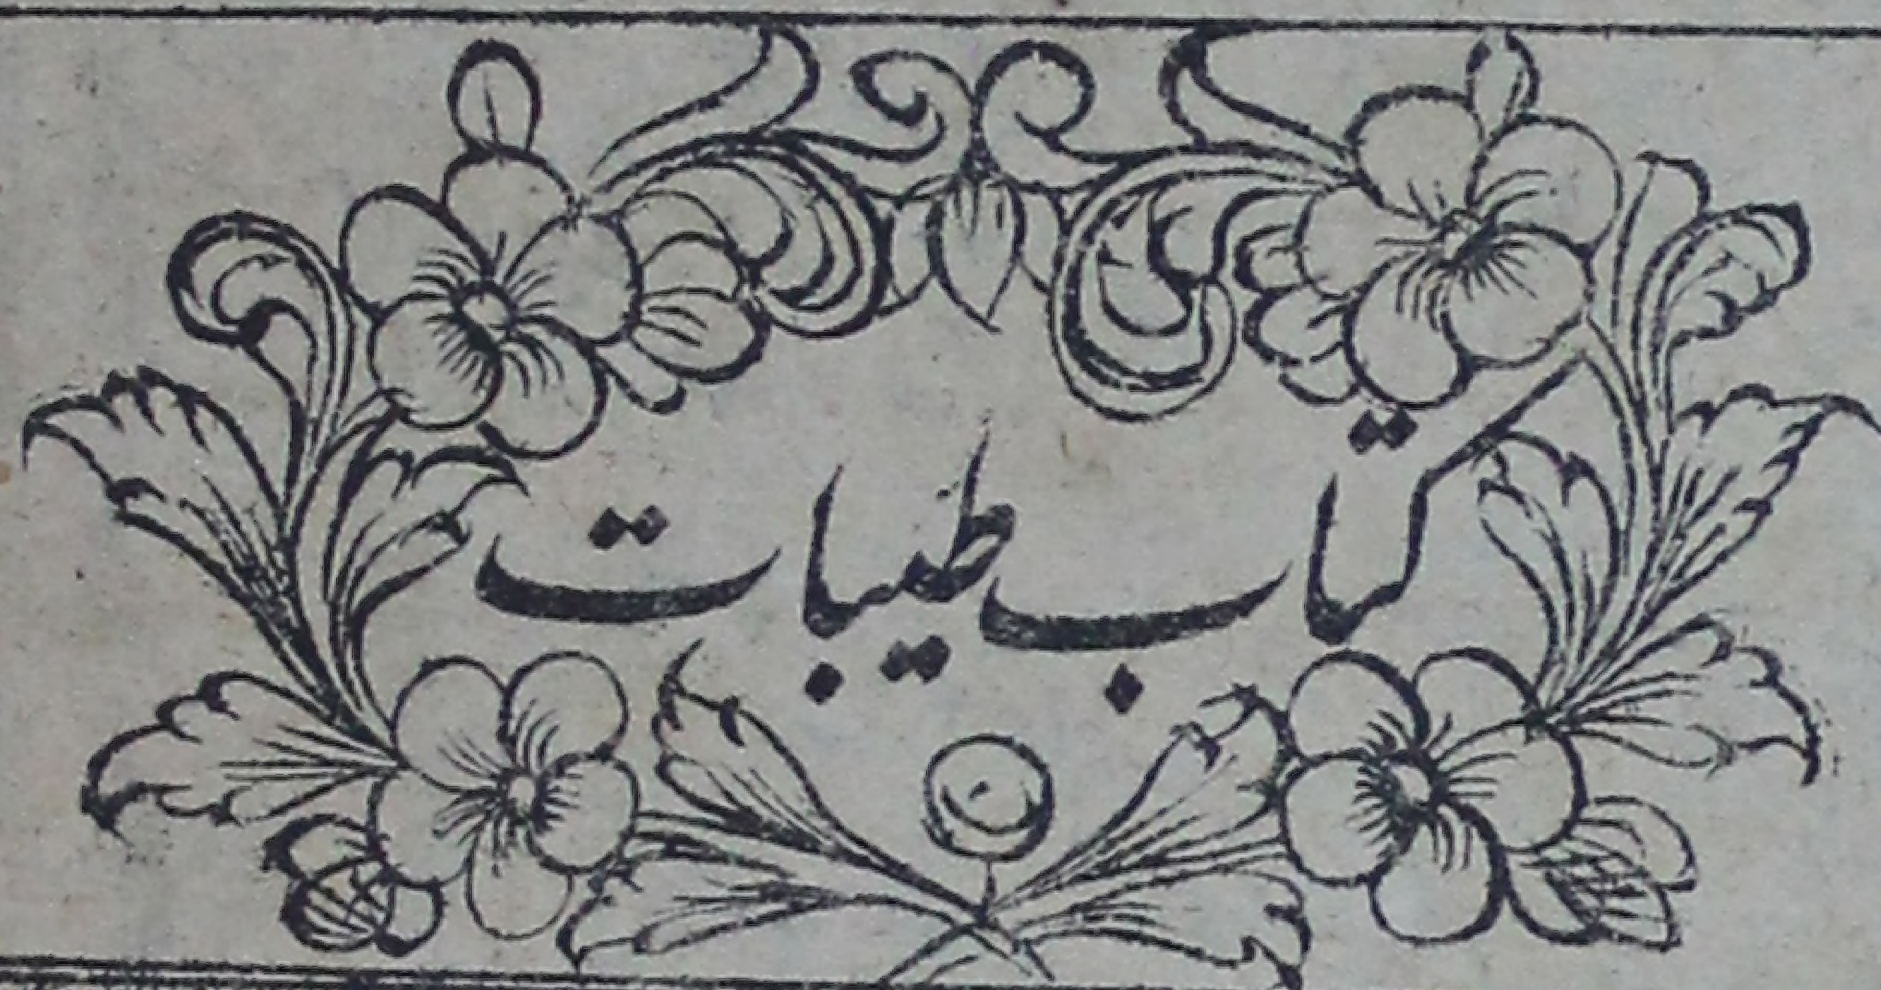 کتاب طیبات